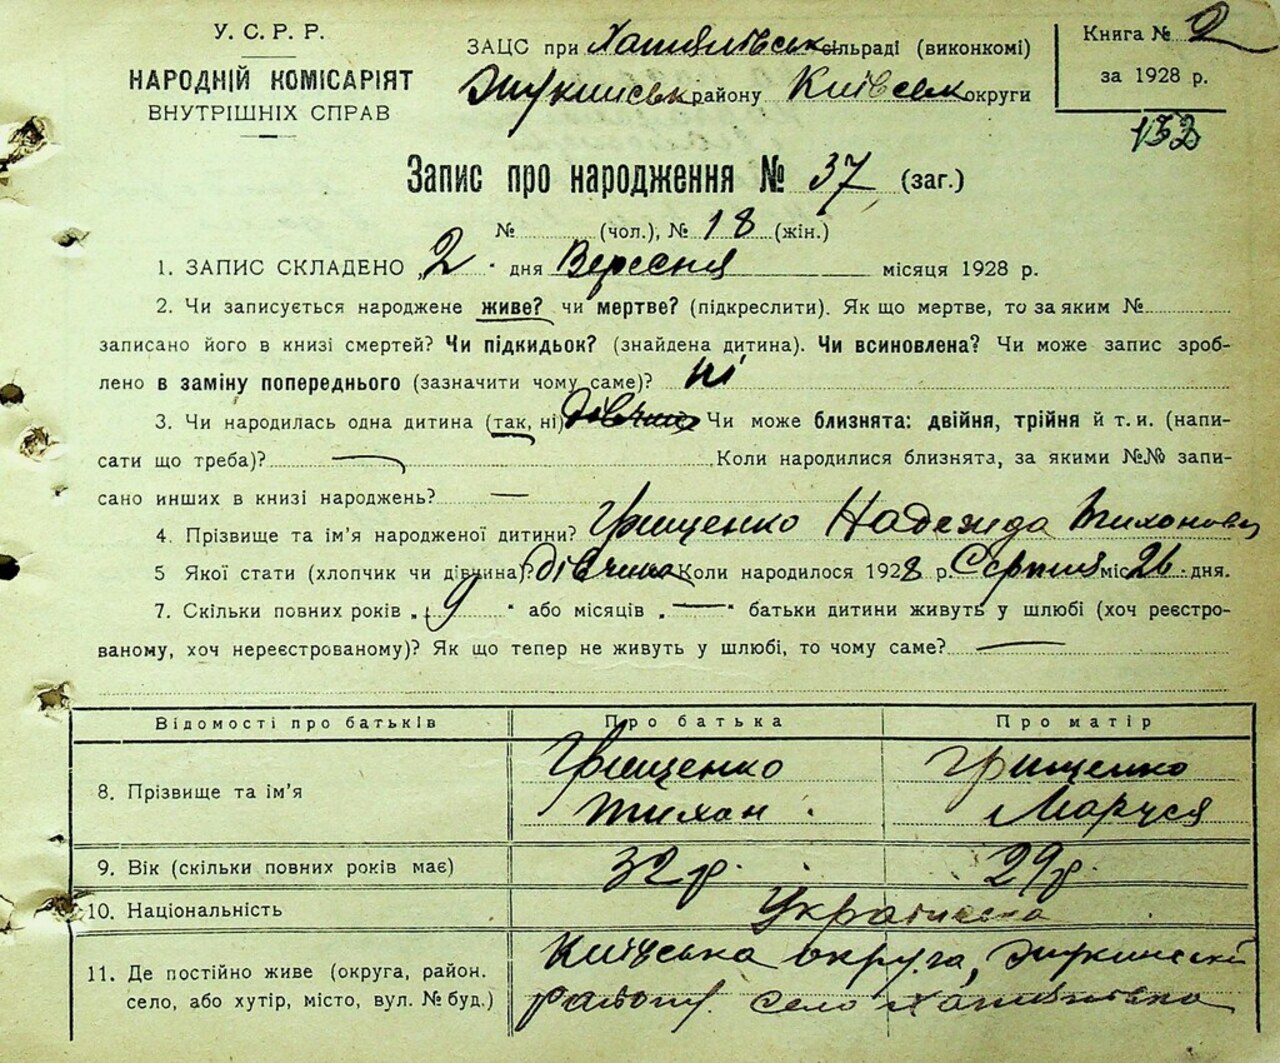 У. С. Р. Р.
НАРОДНІЙ КОМІСАРІЯТ
ВНУТРІШНІХ СПРАВ
ЗАЦС при Хотянівськ сільраді (виконкомі)
Жукинськ району Київськ округи
Книга № 2
за 1928 р.
132
Запис про народження № 37 (заг.)
№ (чол.), № 18 (жін.)
1. ЗАПИС СКЛАДЕНО „2" дня Вересня місяця 1928 р.
2. Чи записується народжене живе? чи мертве? (підкреслити). Як що мертве, то за яким №
записано його в книзі смертей? Чи підкидьок? (знайдена дитина). Чи всиновлена? Чи може запис зроб-
лено в заміну попереднього (зазначити чому саме)? ні
3. Чи народилась одна дитина (так, ні) дівчина Чи може близнята: двійня, трійня й т. и. (напи-
сати що треба)? — Коли народилися близнята, за якими №№ запи-
сано инших в книзі народжень? —
4. Прізвище та ім'я народженої дитини? Грищенко Надежда Тихоновна
5 Якої стати (хлопчик чи дівчина)? дівчина Коли народилося 1928 р. Серпня міс 26 дня.
7. Скільки повних років „9" або місяців „—" батьки дитини живуть у шлюбі (хоч реєстро-
ваному, хоч нереєстрованому)? Як що тепер не живуть у шлюбі, то чому саме? —
Відомості про батьків Про батька Про матір
8. Прізвище та ім'я Грищенко Тихан Грищенко Маруся
9. Вік (скільки повних років має) 32 р. 29 р.
10. Національність
11. Де постійно живе (округа, район. Київська округа, Жукинский
село, або хутір, місто, вул. № буд.) району. село Хотянівка